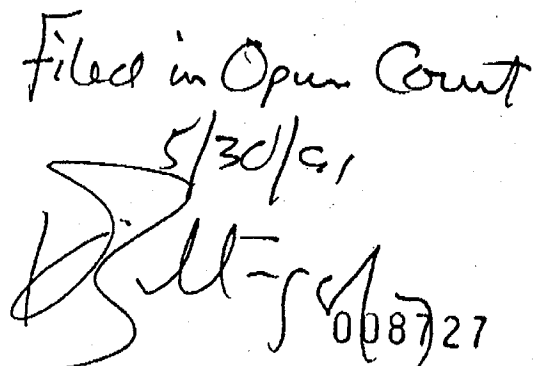 Filed in Open Court
5/30/91
008727